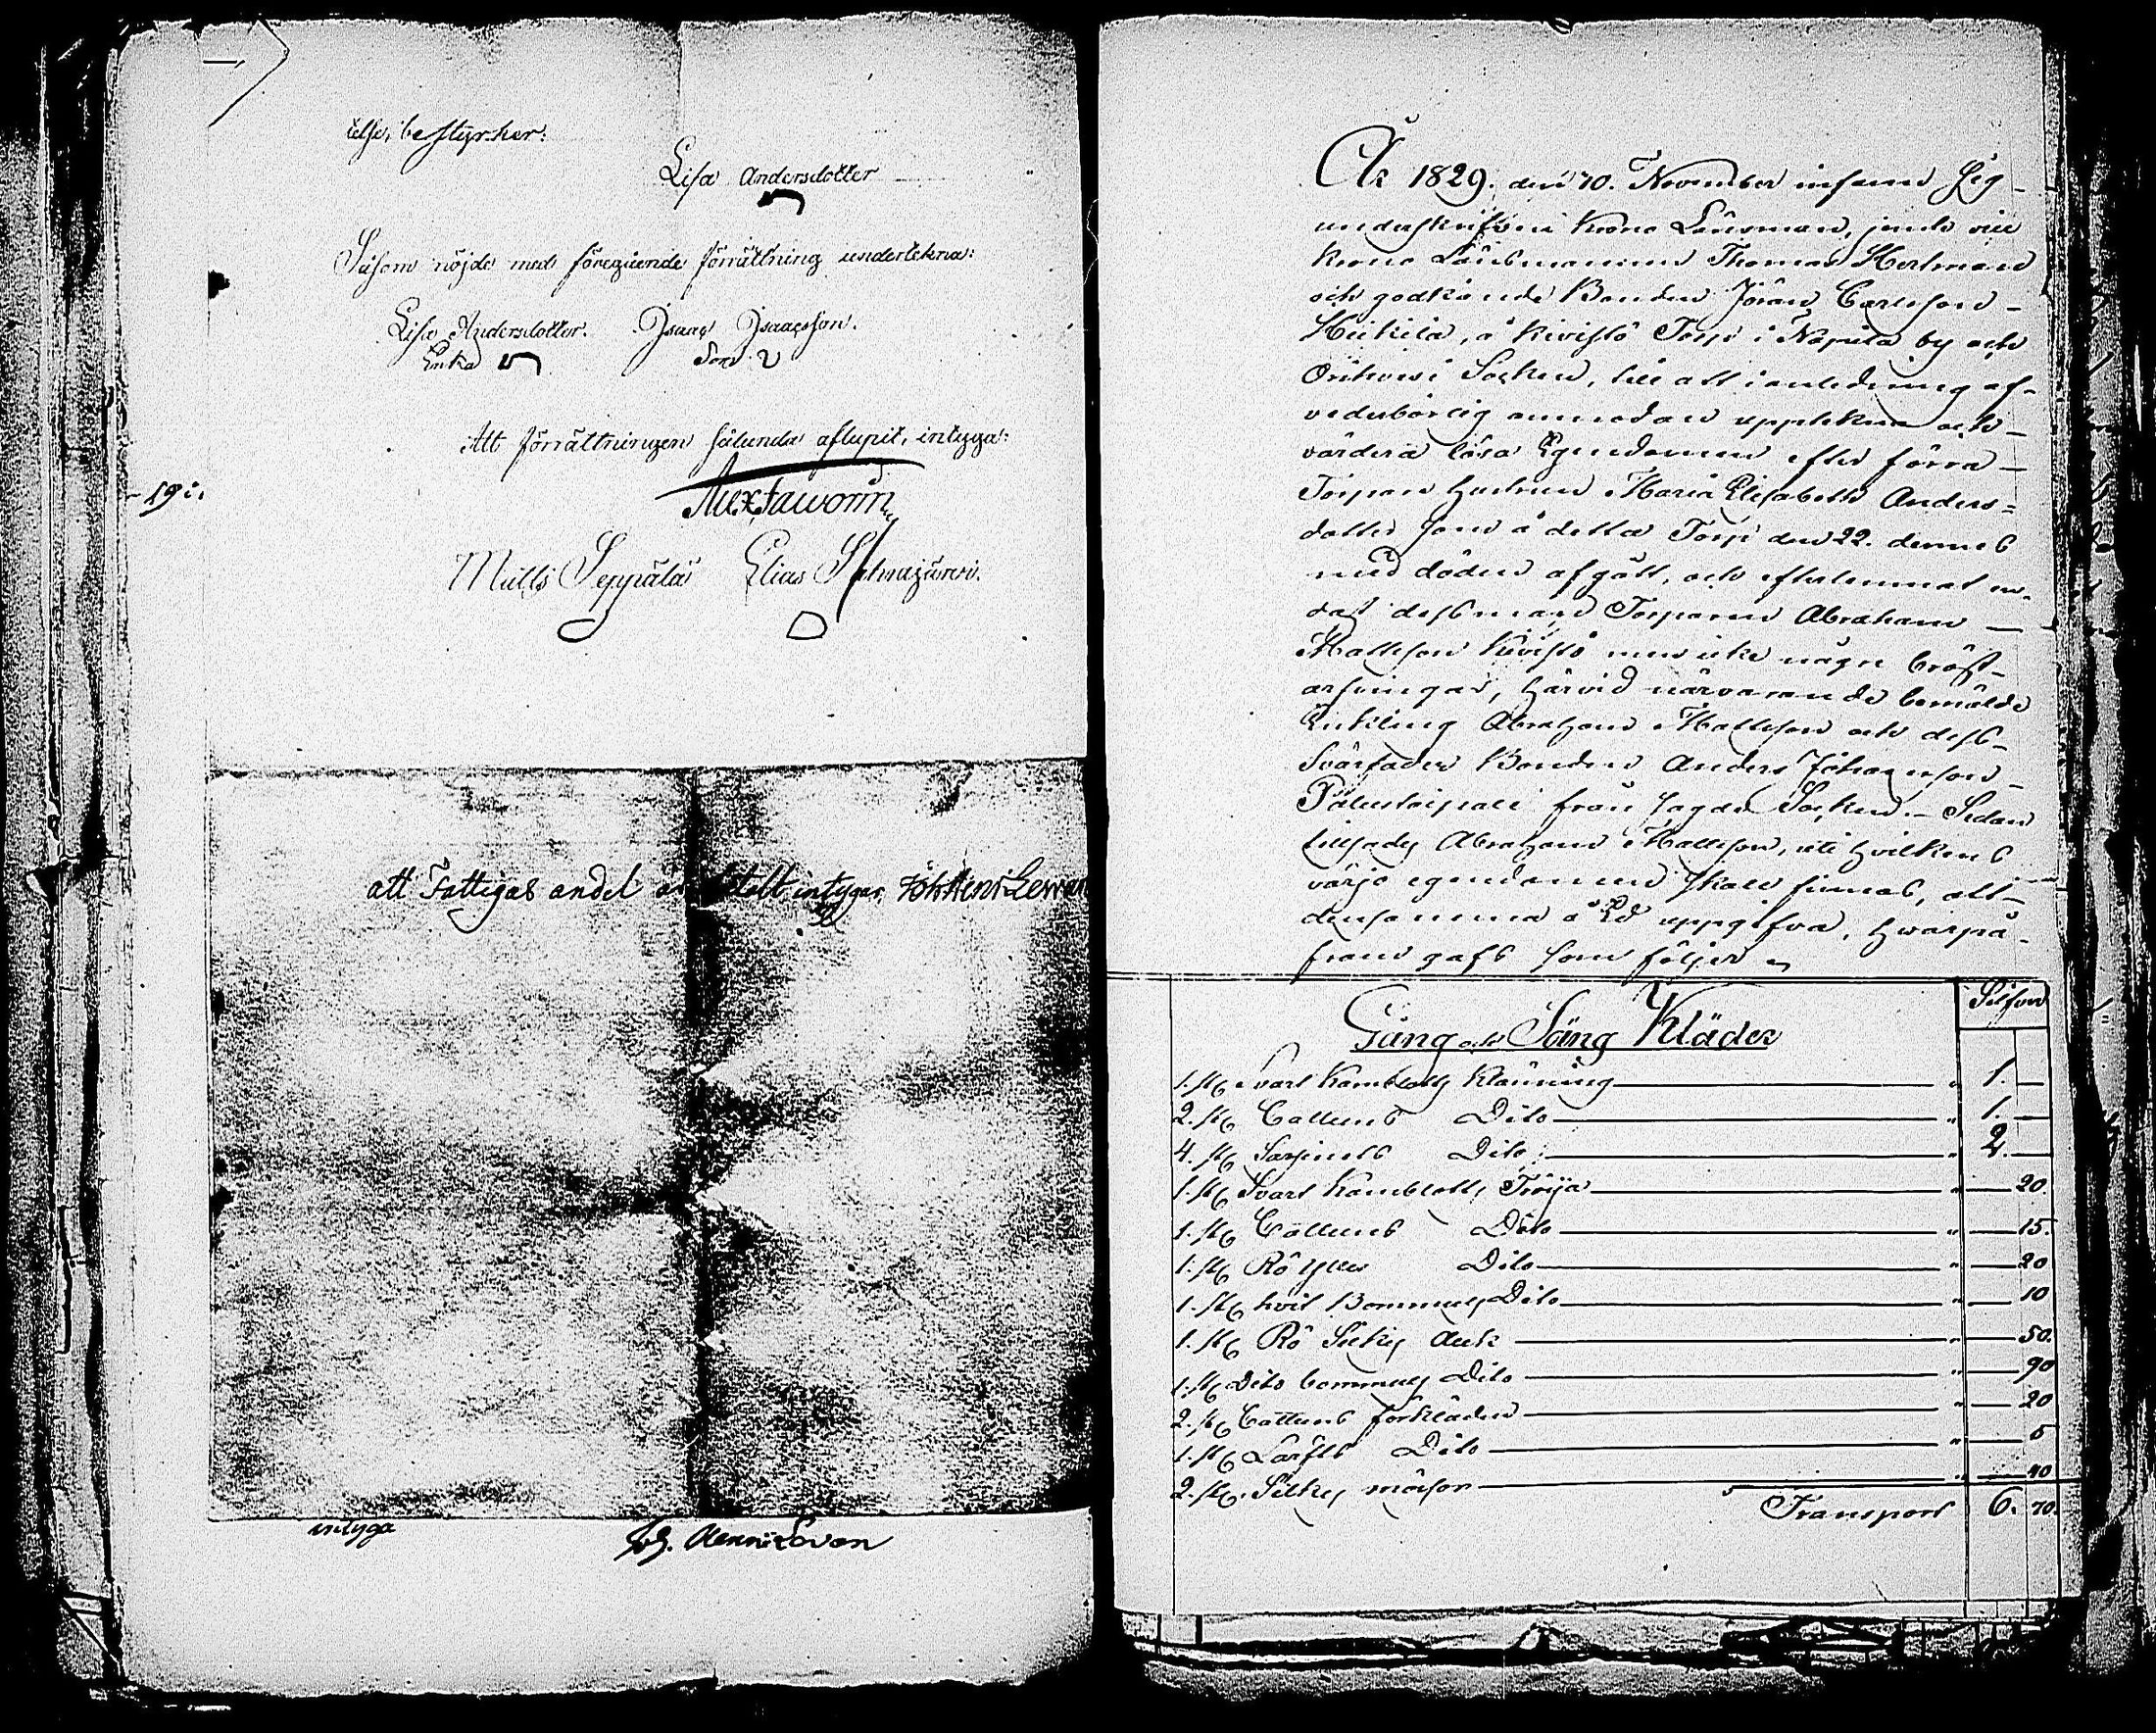 else, bestyrker:
Lisa Andersdotter
Såsom nöjde med föregående förrättning underteknas:
Lisa Andersdotter. Isaac Isaacsson.
Enka Son
Att förrättningen sålunda aflupit, intyga:
19:
Matts Seppälä Elias
att Fattigas andel är intygar,
intyga
År 1829. den 10. November infann sig
underskrifven Krono Länsman, jemte vice
Krono Länsmannen Thomas Hertman
och godkände Bonden Jöran Carlsson
Heikilä, å Kivistö Torp i Näpilä by och
Orihvesi Socken, till att i anledning af
vederbörlig anmodan upptekna och
värdera lösa Egendomen efter förra
Torpare Hustrun Maria Elisabeth Anders-
dotter som å detta Torp den 22. dennes
med döden afgått, och efterlemnat en-
dast dess man Torparen Abraham
Mattsson Kivistö men icke någre bröst-
arfvingar, härvid närvarande bemälde
Enkling Abraham Mattsson och dess
Svärfader Bonden Anders Johansson
från Socken. Sedan
tillsades Abraham Mattsson, uti hvilkens
värjo egendomen skall finnas, att
densamma å Ed uppgifva, hwarpå
fram gafs som följer
Silfver
Gång och Säng Kläder
1. st. Svart Kamblotts Klänning " 1. —
2. st. Cattuns Dito " 1. —
4. st. Sarsinets Dito " 2. —
1. st. Svart Kamblotts Tröija " — 20.
1. st. Cattuns Dito " — 15.
1. st. Rö Ylle Dito " — 20
1. st. hvit Bommuls Dito " — 10
1. st. Rö Silkes duk " — 50.
1. st. Dito bommuls Dito " — 90
2. st. Cattuns förkläden " — 20
1. st. Lärfts Dito " — 5
2. st. Silkes mössor " — 40
Transport 6. 70.